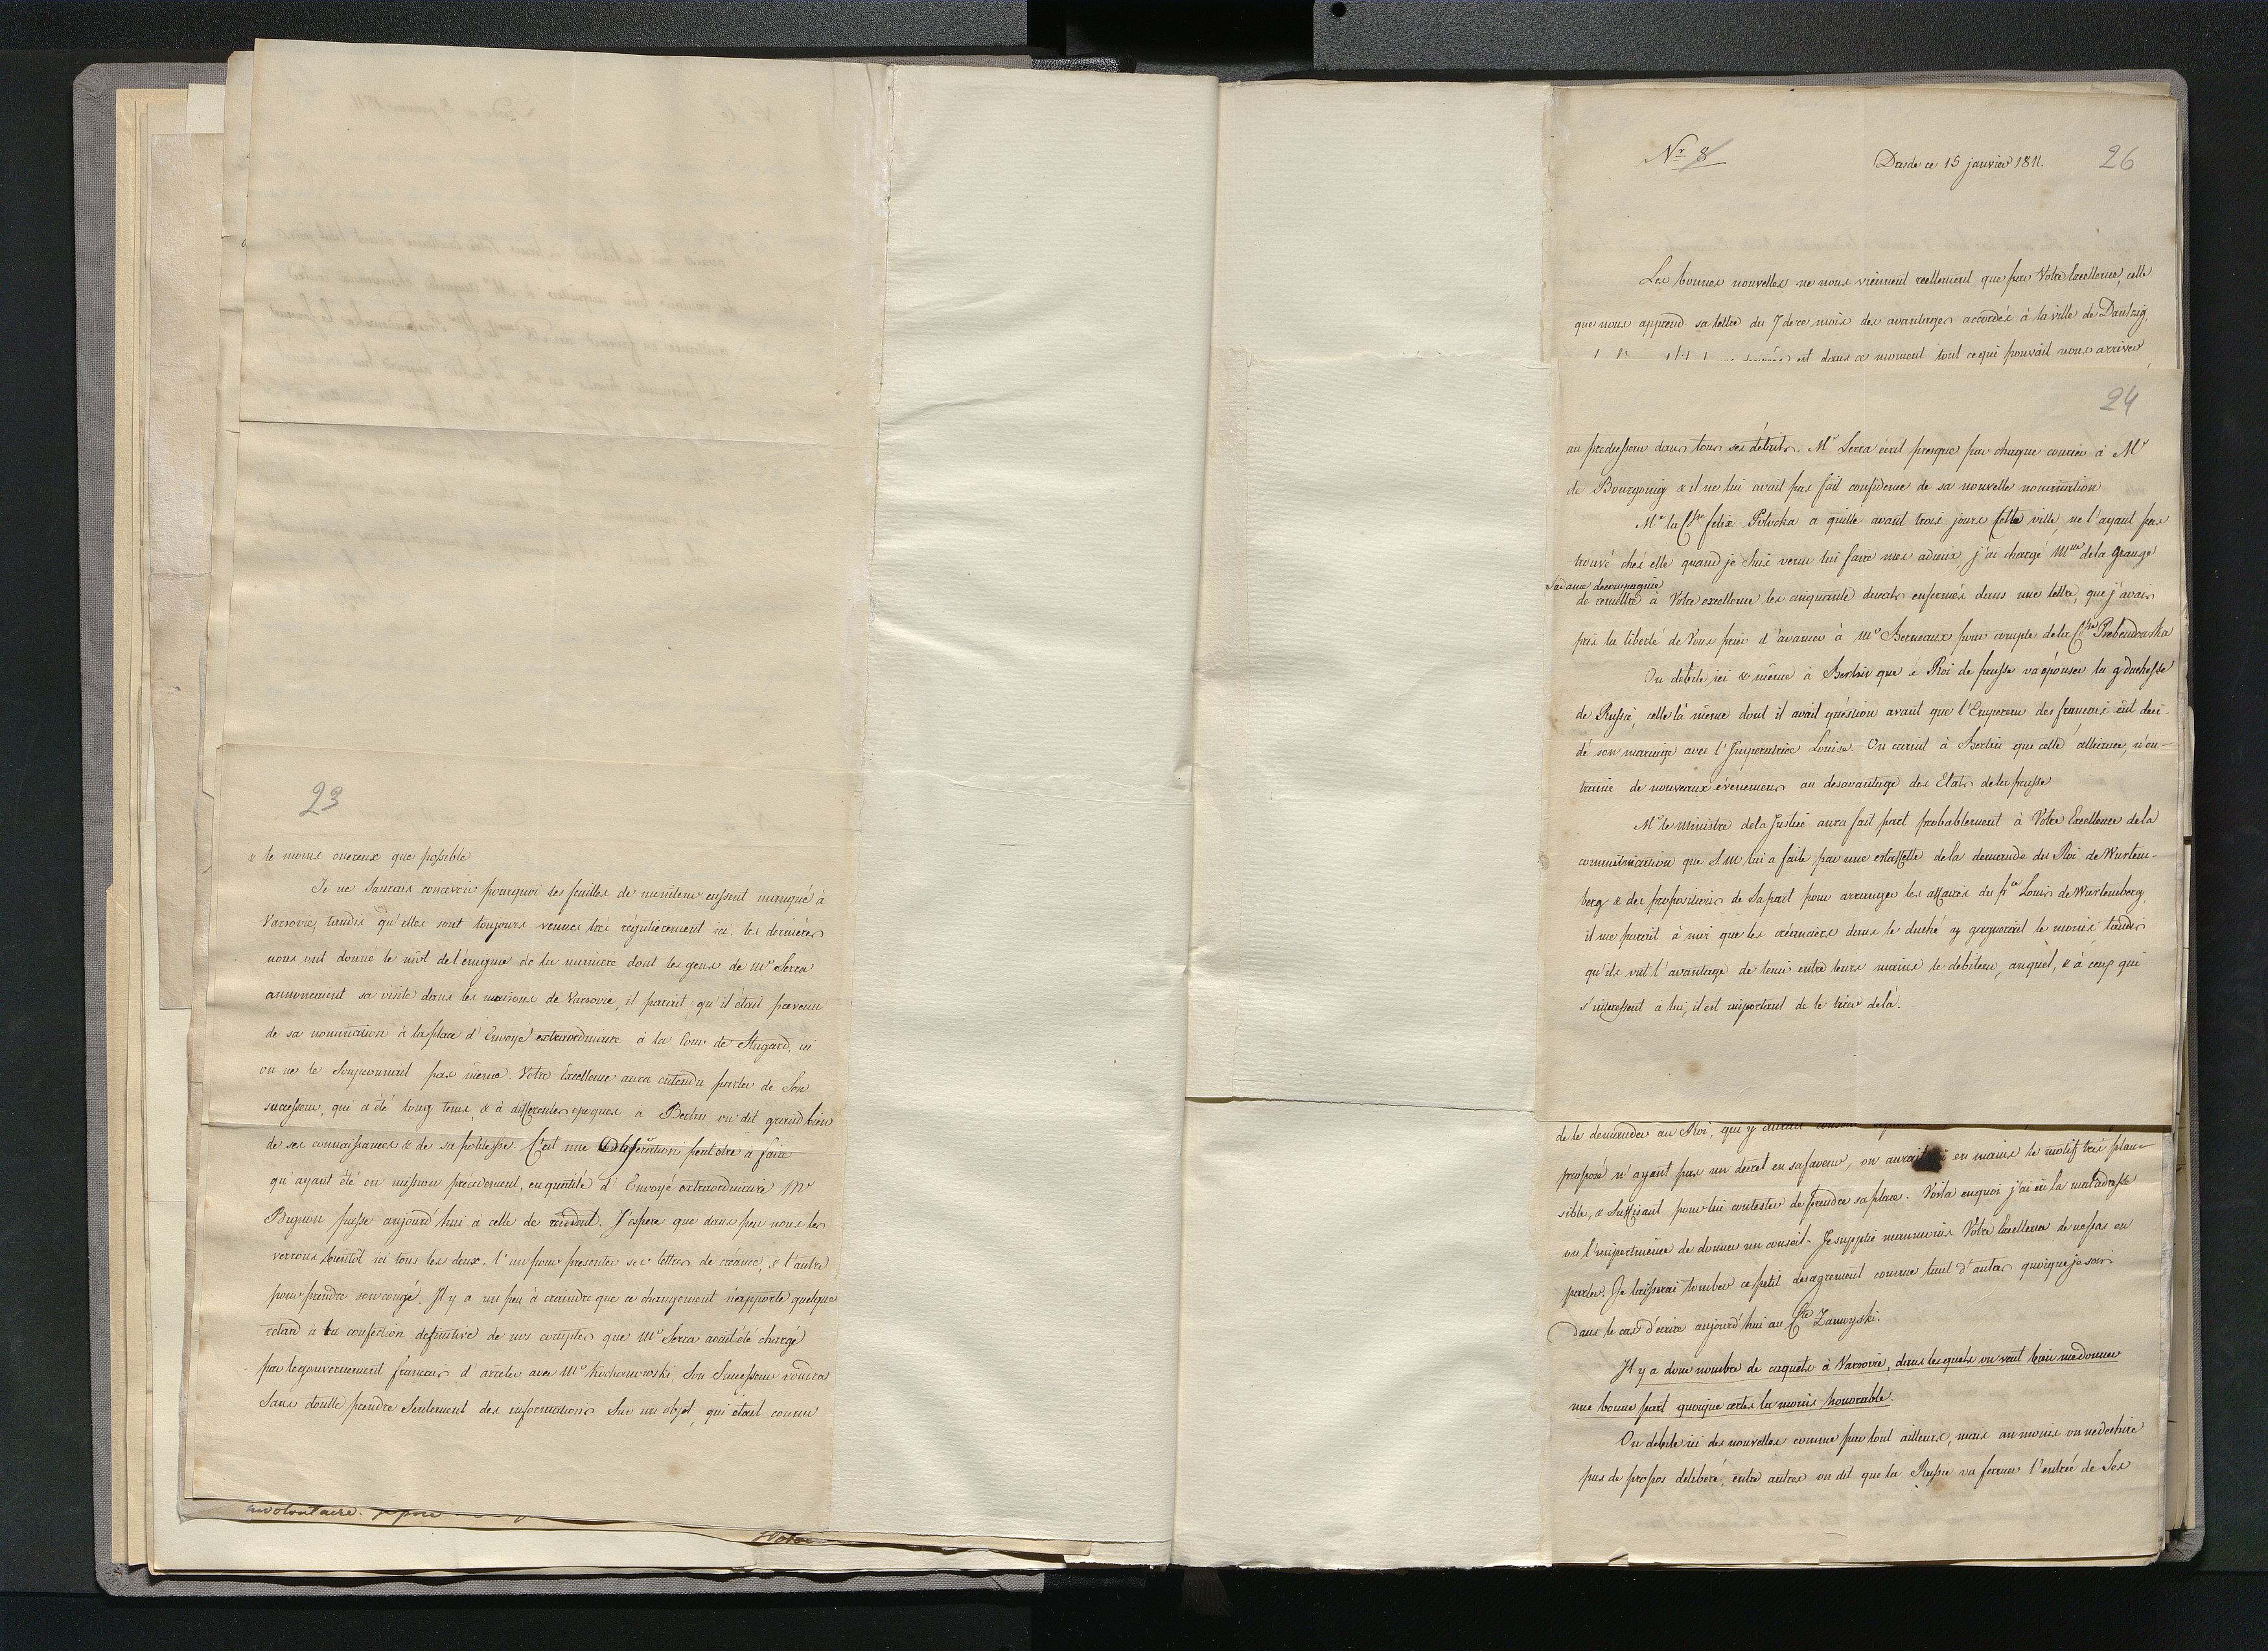 23
& le moins onereux que possible
Je ne saurais concevoir pourquoi les feuilles de moniteur eussent manqué à
Varsovie, tandis qu'elles sont toujours venues tres régulierement ici. les dernières
nous ont donné le mot de l'énigme de la maniere dont les gens de Mr Serra
annoncaient sa visite dans les maisons de Varsovie, il parait, qu'il était prevenu
de sa nomination à la place d'Envoyé extraordinaire à la Cour de Stugard, ici
on ne le soupconnait pas même. Votre Excellence aura entendu parler de Son
successeur, qui a été long tems, & à differentes epoques à Berlin on dit grand bien
de ses connaissances & de sa politesse. C'est une Observation peut être à faire
qu'ayant été en mission précédement, en qualité d'Envoyé extraordinaire Mr
Bignon passe aujourd'hui à celle de résident. J'espere que dans peu nous les
verrons bientôt ici tous les deux, l'un pour presenter ses lettres de créance, & l'autre
pour prendre son congé. Il y a un peu à craindre que ce changement n'apporte quelque
retard à la confection definitive de nos comptes que Mr Serra avait été chargé
par le gouvernement francais d'arreter avec Mr Kochanowski. Son Successeur voudra
sans doutte prendre seulement des informations sur un objet, qui était connu
involontaire. je
Votre
Nr 8
Dresde ce 15 janvier 1811.
26
Les bonnes nouvelles ne nous viennent reellement que par Votre Excellence, celle
que nous apprend sa lettre du 7 de ce mois des avantages accordés à la ville de Dantzig,
est dans ce moment tout ce qui pouvait nous arriver
24
au predesseur dans tous ses détails. Mr Serra écrit presque par chaque courier à Mr
de Bourgoing & il ne lui avait pas fait confidence de sa nouvelle nomination
Me la Ctsse felix Potocka a quitté avant trois jours Cette ville, ne l'ayant pas
trouvé chés elle quand je suis venu lui faire mes adieux, j'ai chargé Mme de la Grange
sa dame de compagnie
de remettre à Votre excellence les cinquante ducats enfermés dans une lettre, que j'avais
pris la liberté de Vous prier d'avancer à Mr Bernaux pour compte de la Ctsse Prebendowska
On debite ici & même à Berlin que le Roi de prusse va épouser la g. duchesse
de Russie, celle là même dont il avait question avant que l'Empereur des francais eût deci-
dé son mariage avec l'Imperatrice Louise. On craint à Berlin que cette alliance, n'en-
traine de nouveaux évènemens au desavantage des Etats de la prusse
Mr le Ministre de la Justice aura fait part probablement à Votre Excellence de la
communication que S.M lui a faite par une estaffette de la demande du Roi de Wurtem-
berg & des propositions de Sa part pour arranger les affaires du pce Louis de Wurtemberg,
il me parait à moi que les créanciers dans le duché y gagneront le moins tandis
qu'ils ont l'avantage de tenir entre leurs mains le debiteur, auquel, & à ceux qui
s'interessent à lui, il est important de le tirer de là.
de le demander au Roi, qui y aurait
proposé n'ayant pas un decret en sa faveur, on aurait en mains le motif très plau-
sible, & suffisant pour lui contester de prendre sa place. Voila en quoi j'ai eû la maladresse
ou l'impertinence de donner un conseil. Je supplie neanmoins Votre Excellence de ne pas en
parler. Je laisserai tomber ce petit desagrement comme tant d'autres quoique je sois
dans le cas d'écrire aujourd'hui au Cte Zamoyski.
Il y a donc nombre de caquets à Varsovie, dans lesquels on veut bien me donner
une bonne part quoique certes la moins honorable.
On debite ici des nouvelles comme par tout ailleurs, mais au moins on ne dechire
pas de propos deliberé, entre autres on dit que la Russie va fermer l'entrée de Ses